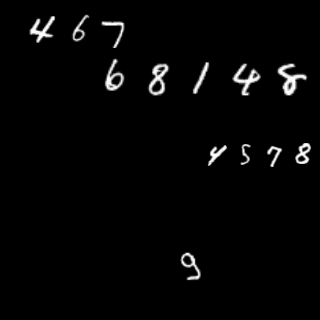 467
68148
4578
9